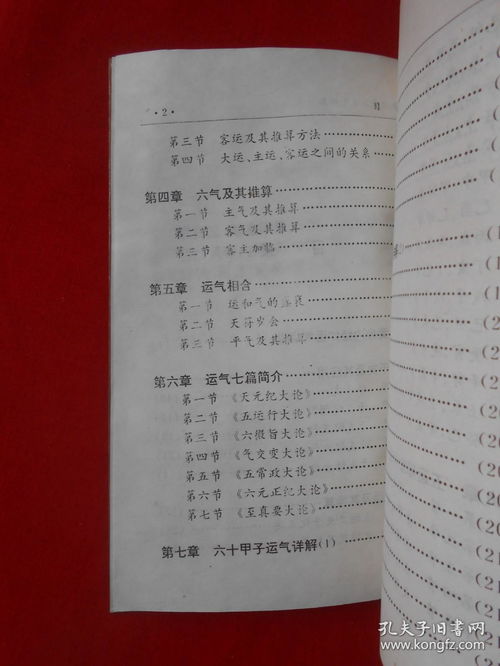 · 2 · 目
第三节 客运及其推算方法……………
第四节 大运、主运、客运之间的关系
第四章 六气及其推算……………
第一节 主气及其推算……………
第二节 客气及其推算……………
第三节 客主加临……………
第五章 运气相合……………
第一节 运和气的盛衰……………
第二节 天符岁会……………
第三节 平气及其推算……………
第六章 运气七篇简介……………
第一节 《天元纪大论》……………
第二节 《五运行大论》……………
第三节 《六微旨大论》……………
第四节 《气交变大论》……………
第五节 《五常政大论》……………
第六节 《六元正纪大论》……………
第七节 《至真要大论》……………
第七章 六十甲子运气详解(1)……
孔夫子旧书网
www.kongfz.com